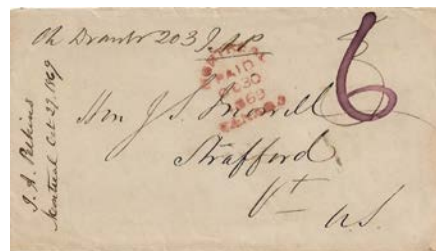 Ch Drawer 203 J.A.P
MONTREAL
PAID
OC 30
1869
CANADA
6
Hon J. S. Morrill
Strafford
Vt
U.S.
J. A. Perkins
Montreal Oct 29, 1869